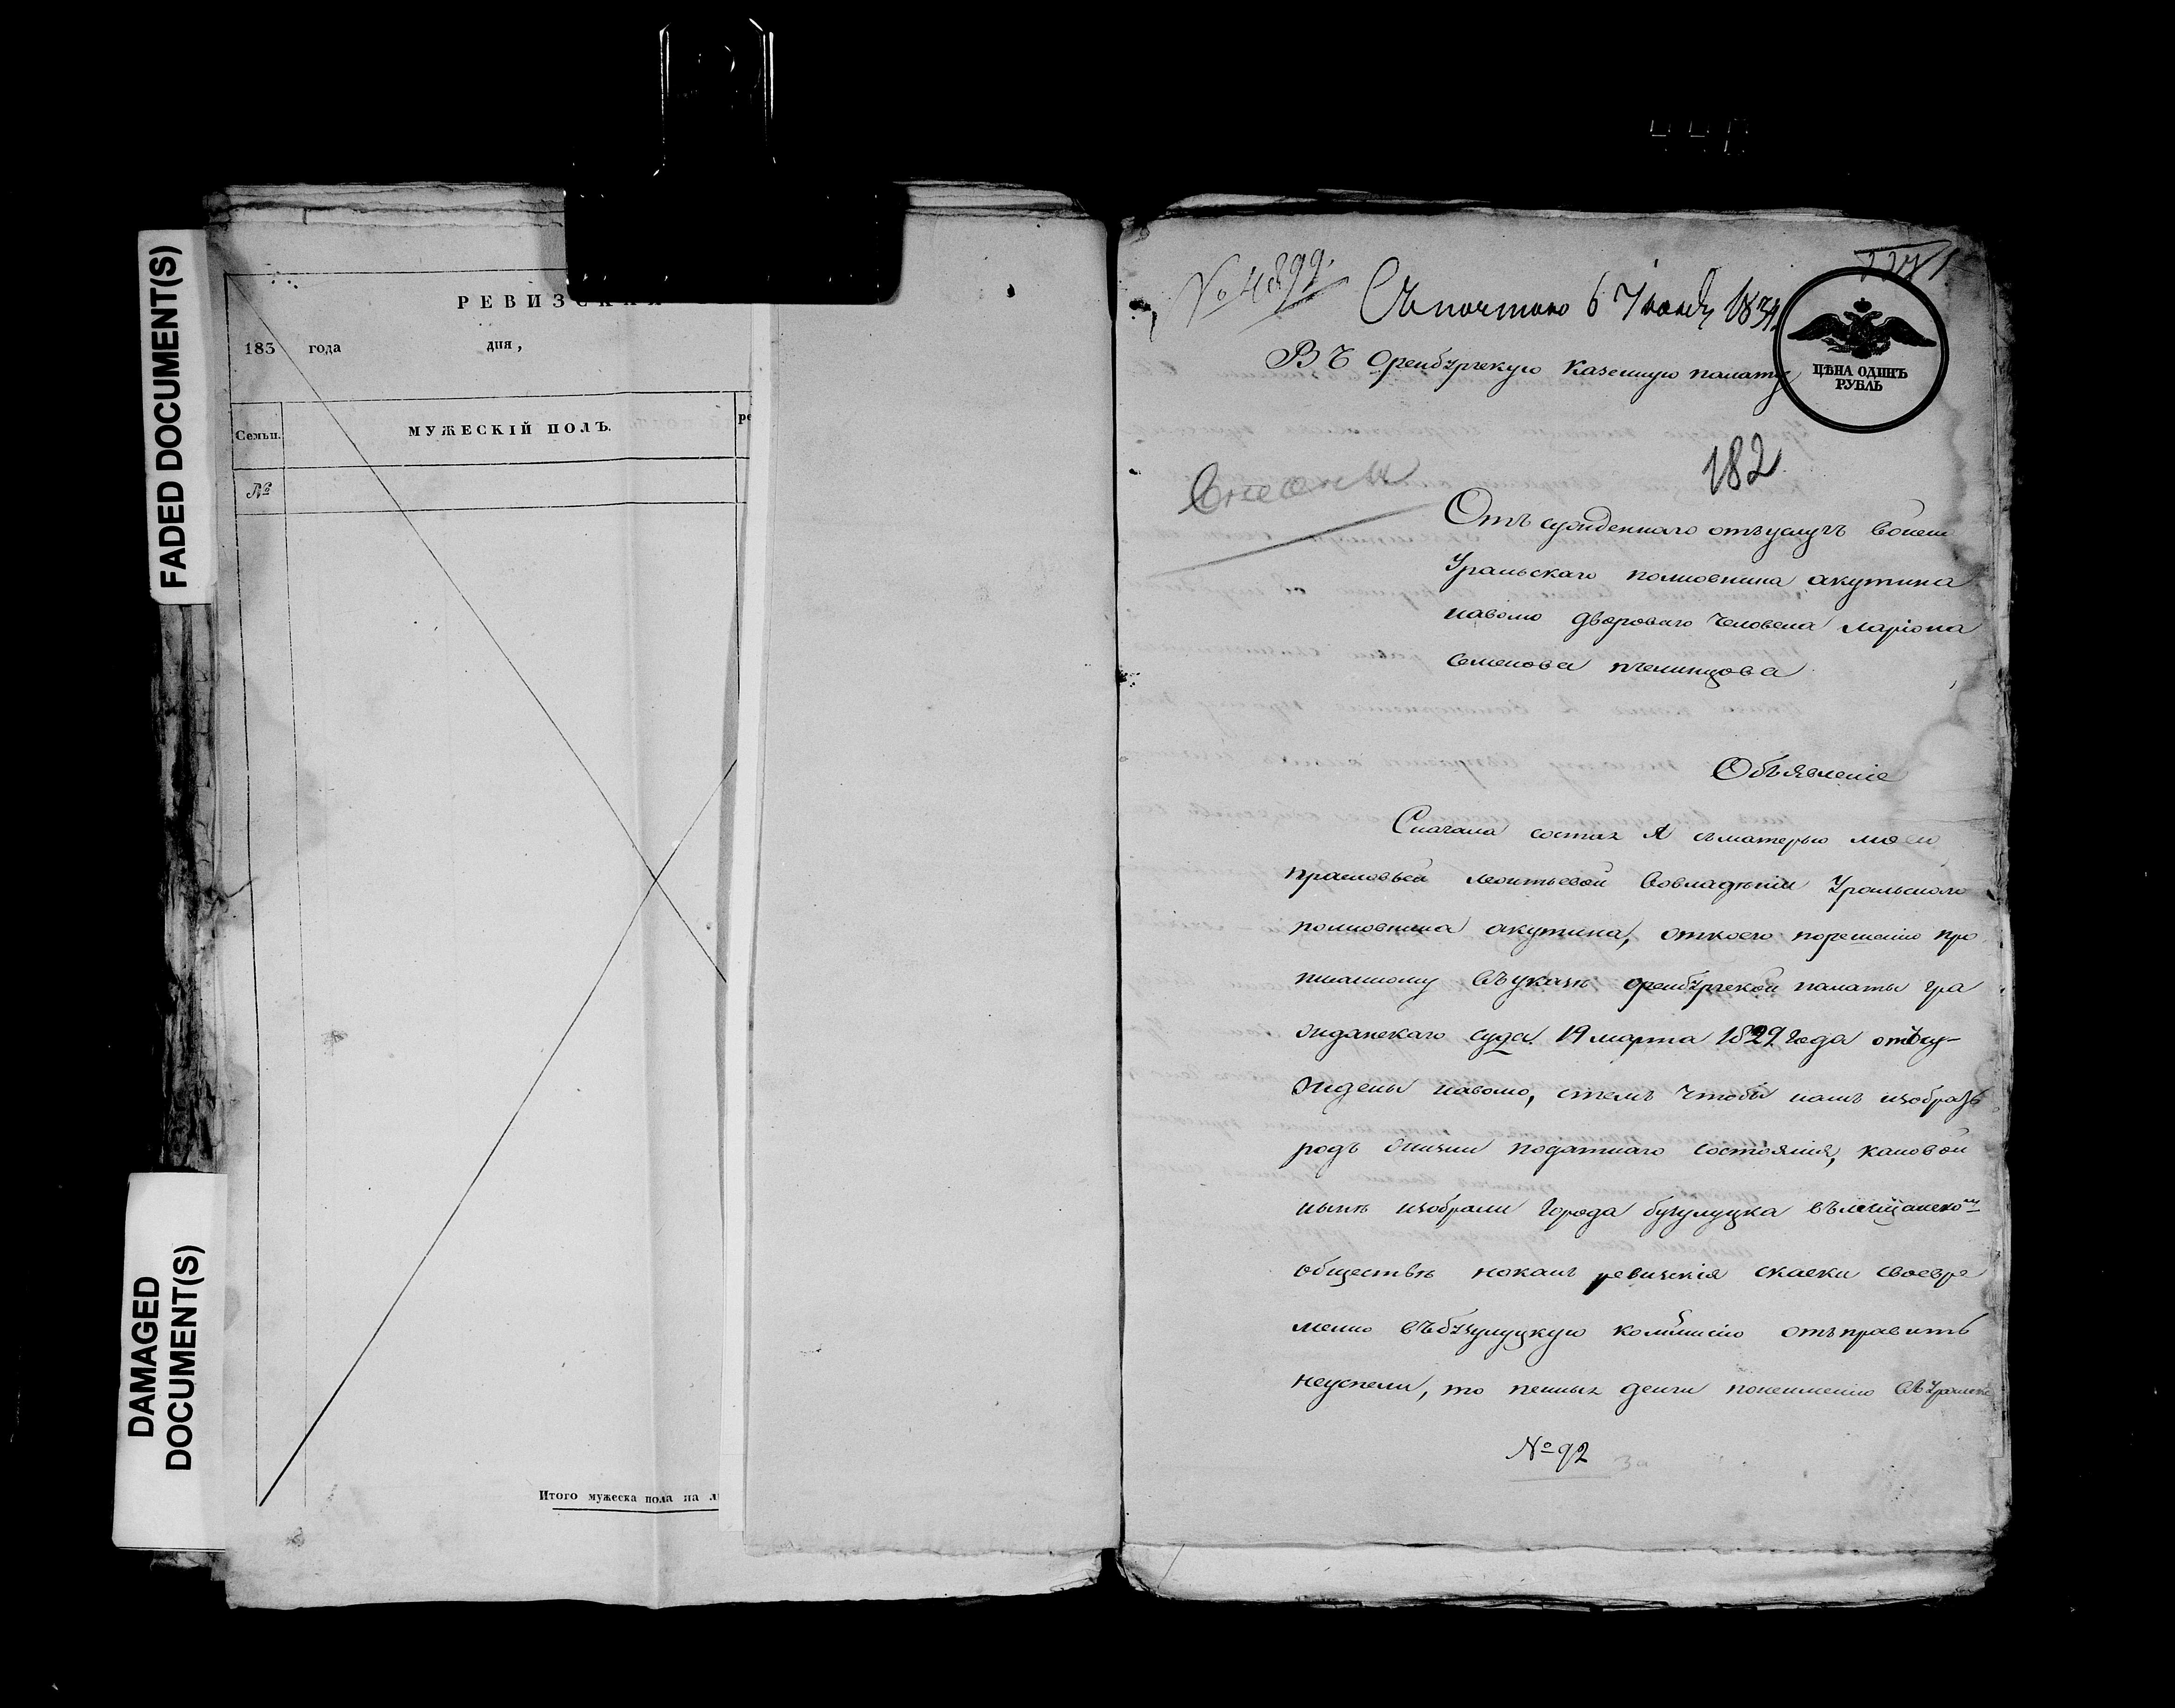 FADED DOCUMENT(S)
DAMAGED
DOCUMENT(S)
РЕВИЗСКАЯ
183 года дня,
Семьи. МУЖЕСКІЙ ПОЛЪ. ре
№
Итого мужеска пола на л
№ 4899.
Съ почтою 6 Июня 1834.
ВЪ Оренбургскую казенную палату
ЦѢНА ОДИНЪ
РУБЛЬ
182
Отъ сужденнаго отъ услугъ
Уральскаго полковника акутина
наволю двороваго человека ларіона
семенова пчелинцова
Объявленіе
Сначала состая Я съматерью моею
прасковьей леонтьевой вовладѣніи Уральскаго
полковника акутина, откоего порешению про
писанному въуказѣ оренбургской палаты гра
жданскаго суда 19 марта 1829 года отъсу-
ждены наволю, стемъ чтобы намъ избрать
родъ жизни податнаго состоянія, каковой
нынѣ избрали города бузулуцка въмещанско
обществѣ нокакъ ревизскія скаски своевре
менно въбузулуцкую комисию отъправить
неуспели, то пенныя денги понеимению
№ 92